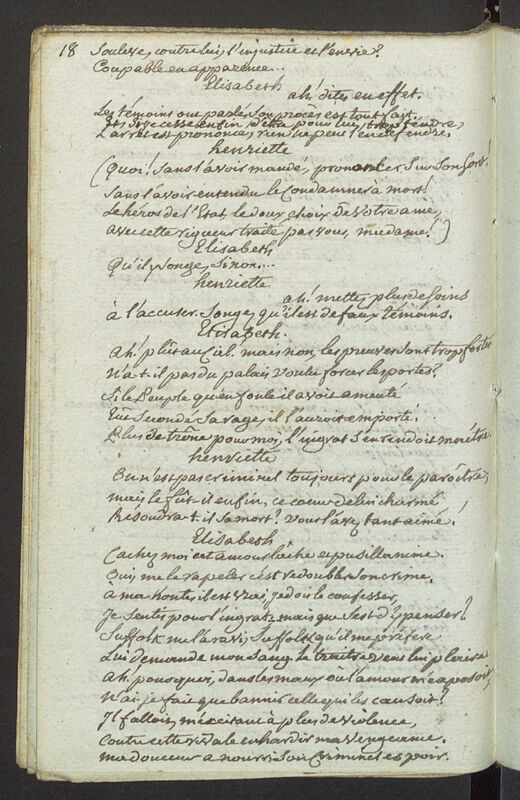 18 Souleve, contre lui, l'injustice et l'envie?
Coupable en apparence...
Elisabeth
ah! dites en effet.
Les témoins ont parlé, son procès est tout fait.
enfin pour lui, trop tendre,
L'arrest est prononcé, rien ne peut l'en défendre.
henriette
(Quoi! sans l'avoir mandé, prononcer sur son sort!
Sans l'avoir entendu le Condamner a mort!
Le héros de l'Etat, le doux choix de votre ame,
avec cette rigueur traité par vous, madame!)
Elisabeth
Qu'il y songe, sinon....
henriette
ah! mettez plus de soins
à l'accuser. Songez qu'il est de faux témoins.
Elisabeth.
Ah! plût au Ciel. mais non, les preuves sont trop fortes
N'a-t-il pas du palais voulu forcer les portes?
Si le Peuple qu'en foule il avoit ameuté
Eut Secondé Sa rage, il l'auroit emporté.
Plus de trône pour moi, l'ingrat s'en rendoit maître.
henriette
On n'est pas criminel toujours pour le paroître;
mais le fût-il enfin, ce coeur de lui charmé
Résoudra-t-il Sa mort? vous l'avez tant aimé!
Elisabeth
Cachez moi cet amour lâche et pusillanime.
Oui, me le rapeler c'est redoubler Son crime,
à ma honte, il est vrai, je dois le confesser,
Je Sentis pour l'ingrat.. mais que Sert d'y penser?
Suffolk me l'a ravi; Suffolk qu'il me préfere
Lui demande mon Sang. le traître veut lui plaire
Ah! pourquoi, dans les maux où l'amour m'exposoit
N'ai-je fait que bannir celle qui les causoit!
Il falloit, m'excitant à plus de violence,
Contre cette rivale enhardir ma vengeance.
ma douceur a nourri Son Criminel espoir.